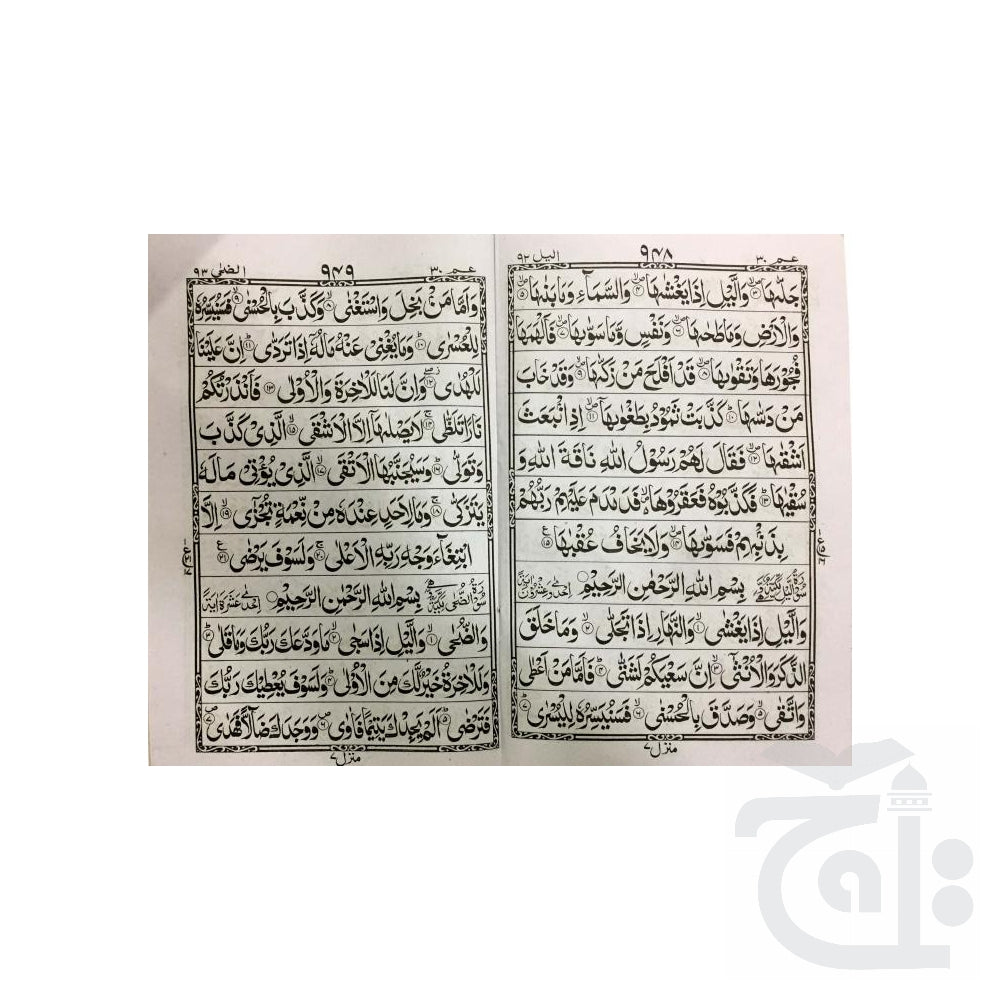 اليل ۹۲
۹۴۸
عم ۳۰
جَلّٰىهَا ۙ۳ وَالَّيْلِ اِذَا يَغْشٰىهَا ۙ۴ وَالسَّمَآءِ وَمَا بَنٰىهَا ۙ۵
وَالْاَرْضِ وَمَا طَحٰىهَا ۙ۶ وَنَفْسٍ وَّمَا سَوّٰىهَا ۙ۷ فَاَلْهَمَهَا
فُجُوْرَهَا وَتَقْوٰىهَا ۙ۸ قَدْ اَفْلَحَ مَنْ زَكّٰىهَا ۙ۹ وَقَدْ خَابَ
مَنْ دَسّٰىهَا ؕ۱۰ كَذَّبَتْ ثَمُوْدُ بِطَغْوٰىهَاۤ ۙ۱۱ اِذِ انْۢبَعَثَ
اَشْقٰىهَا ۙ۱۲ فَقَالَ لَهُمْ رَسُوْلُ اللّٰهِ نَاقَةَ اللّٰهِ وَ
سُقْيٰهَا ؕ۱۳ فَكَذَّبُوْهُ فَعَقَرُوْهَا ۙ فَدَمْدَمَ عَلَيْهِمْ رَبُّهُمْ
بِذَنْۢبِهِمْ فَسَوّٰىهَا ۙ۱۴ وَلَا يَخَافُ عُقْبٰهَا ۱۵ ع
سُوْرَةُ الَّيْلِ مَكِّيَّةٌ وَّهِيَ بِسْمِ اللّٰهِ الرَّحْمٰنِ الرَّحِيْمِ ○ اِحْدٰى وَعِشْرُوْنَ اٰيَةً
وَالَّيْلِ اِذَا يَغْشٰى ۙ۱ وَالنَّهَارِ اِذَا تَجَلّٰى ۙ۲ وَمَا خَلَقَ
الذَّكَرَ وَالْاُنْثٰۤى ۙ۳ اِنَّ سَعْيَكُمْ لَشَتّٰى ؕ۴ فَاَمَّا مَنْ اَعْطٰى
وَاتَّقٰى ۙ۵ وَصَدَّقَ بِالْحُسْنٰى ۙ۶ فَسَنُيَسِّرُهٗ لِلْيُسْرٰى ؕ۷
منزل ۷
الضحى ۹۳
۹۴۹
عم ۳۰
وَاَمَّا مَنْۢ بَخِلَ وَاسْتَغْنٰى ۙ۸ وَكَذَّبَ بِالْحُسْنٰى ۙ۹ فَسَنُيَسِّرُهٗ
لِلْعُسْرٰى ؕ۱۰ وَمَا يُغْنِيْ عَنْهُ مَالُهٗۤ اِذَا تَرَدّٰى ؕ۱۱ اِنَّ عَلَيْنَا
لَلْهُدٰى ۱۲ وَاِنَّ لَنَا لَلْاٰخِرَةَ وَالْاُوْلٰى ۱۳ فَاَنْذَرْتُكُمْ
نَارًا تَلَظّٰى ۚ۱۴ لَا يَصْلٰىهَاۤ اِلَّا الْاَشْقَى ۙ۱۵ الَّذِيْ كَذَّبَ
وَتَوَلّٰى ؕ۱۶ وَسَيُجَنَّبُهَا الْاَتْقَى ۙ۱۷ الَّذِيْ يُؤْتِيْ مَالَهٗ
يَتَزَكّٰى ۚ۱۸ وَمَا لِاَحَدٍ عِنْدَهٗ مِنْ نِّعْمَةٍ تُجْزٰۤى ۙ۱۹ اِلَّا
ابْتِغَآءَ وَجْهِ رَبِّهِ الْاَعْلٰى ۚ۲۰ وَلَسَوْفَ يَرْضٰى ۲۱ ع
سُوْرَةُ الضُّحٰى مَكِّيَّةٌ وَّهِيَ بِسْمِ اللّٰهِ الرَّحْمٰنِ الرَّحِيْمِ ○ اِحْدٰى عَشَرَةَ اٰيَةً
وَالضُّحٰى ۙ۱ وَالَّيْلِ اِذَا سَجٰى ۙ۲ مَا وَدَّعَكَ رَبُّكَ وَمَا قَلٰى ؕ۳
وَلَلْاٰخِرَةُ خَيْرٌ لَّكَ مِنَ الْاُوْلٰى ؕ۴ وَلَسَوْفَ يُعْطِيْكَ رَبُّكَ
فَتَرْضٰى ؕ۵ اَلَمْ يَجِدْكَ يَتِيْمًا فَاٰوٰى ۶ وَوَجَدَكَ ضَآلًّا فَهَدٰى ۷
منزل ۷